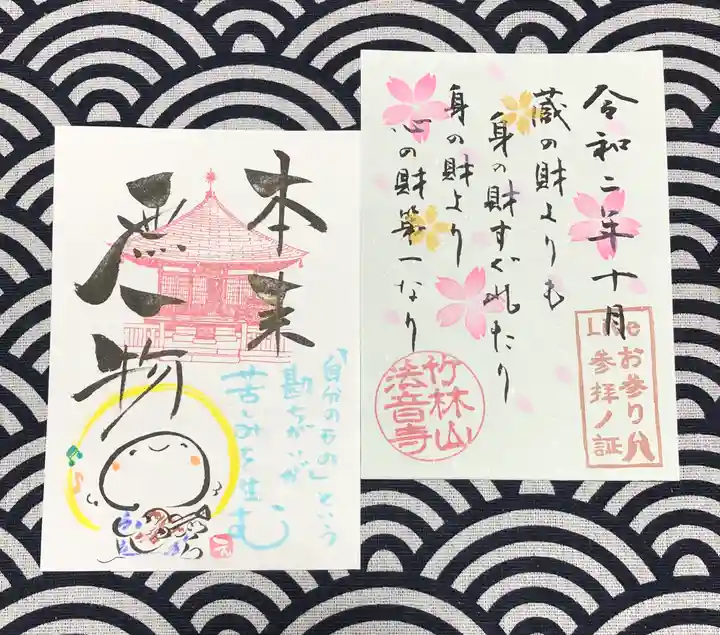 令和二年十月
蔵の財よりも
身の財すぐれたり
身の財より
心の財第一なり
Liveお参り八
参拝ノ証
竹林山
法音寺
本来
無一物
「自分のもの」という
勘ちがいが
苦しみを生む